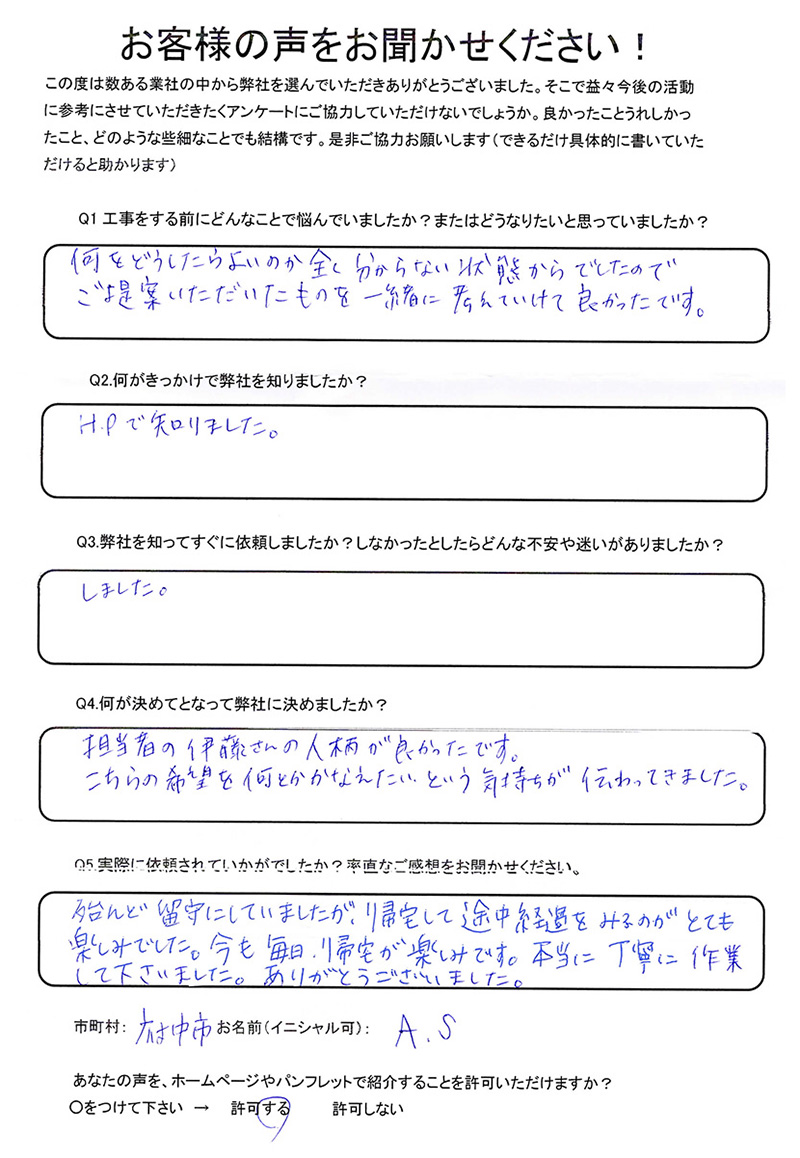 お客様の声をお聞かせください！
この度は数ある業社の中から弊社を選んでいただきありがとうございました。そこで益々今後の活動
に参考にさせていただきたくアンケートにご協力していただけないでしょうか。良かったことうれしかっ
たこと、どのような些細なことでも結構です。是非ご協力お願いします（できるだけ具体的に書いていた
だけると助かります）
Q1 工事をする前にどんなことで悩んでいましたか？またはどうなりたいと思っていましたか？
何をどうしたらよいのか全く分からない状態からでしたので
ご提案いただいたものを一緒に考えていけて良かったです。
Q2.何がきっかけで弊社を知りましたか？
H.Pで知りました。
Q3.弊社を知ってすぐに依頼しましたか？しなかったとしたらどんな不安や迷いがありましたか？
しました。
Q4.何が決めてとなって弊社に決めましたか？
担当者の伊藤さんの人柄が良かったです。
こちらの希望を何とかかなえたいという気持ちが伝わってきました。
Q5.実際に依頼されていかがでしたか？率直なご感想をお聞かせください。
殆んど留守にしていましたが、帰宅して途中経過をみるのがとても
楽しみでした。今も毎日、帰宅が楽しみです。本当に丁寧に作業
して下さいました。ありがとうございました。
市町村： 府中市 お名前（イニシャル可）： A.S
あなたの声を、ホームページやパンフレットで紹介することを許可いただけますか？
〇をつけて下さい → 許可する 許可しない